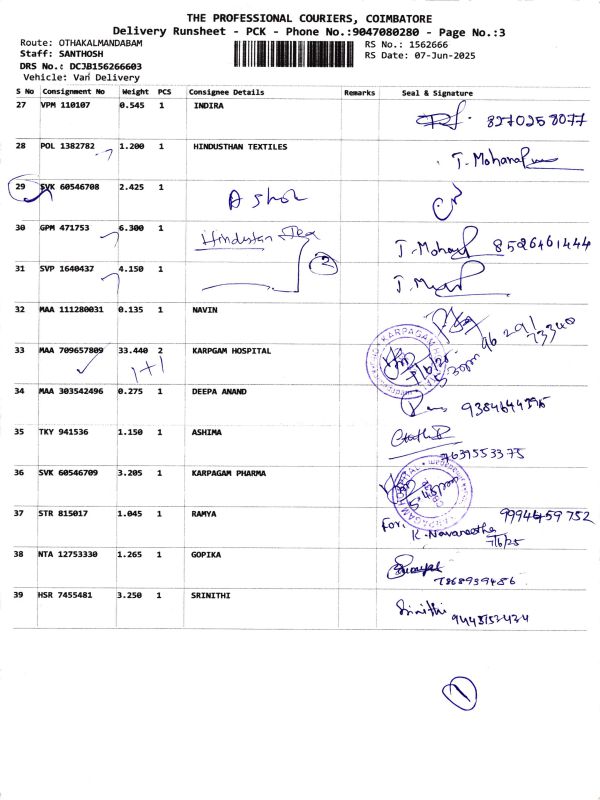 THE PROFESSIONAL COURIERS, COIMBATORE
Delivery Runsheet - PCK - Phone No.:9047080280 - Page No.:3
Route: OTHAKALMANDABAM
RS No.: 1562666
Staff: SANTHOSH
RS Date: 07-Jun-2025
DRS No.: DCJB156266603
Vehicle: Van Delivery
S No Consignment No Weight PCS Consignee Details Remarks Seal & Signature
27 VPM 110107 0.545 1 INDIRA 8270258077
28 POL 1382782 1.200 1 HINDUSTHAN TEXTILES T. Mohana
29 SVK 60546708 2.425 1 Ashok
30 GPM 471753 6.300 1 Hindustan Tex T. Mohan 8526461444
31 SVP 1640437 4.150 1 2
32 MAA 111280031 0.135 1 NAVIN 96 291 73340
33 MAA 709657809 33.440 2 KARPGAM HOSPITAL
1+1 7/6/25 5:30pm
34 MAA 303542496 0.275 1 DEEPA ANAND 9384644395
35 TKY 941536 1.150 1 ASHIMA
7639553375
36 SVK 60546709 3.205 1 KARPAGAM PHARMA
KARPAGAM HOSPITAL
5:45pm
37 STR 815017 1.045 1 RAMYA 9994459752
For. K. Navaneetha
7/6/25
38 NTA 12753330 1.265 1 GOPIKA
7868939486
39 HSR 7455481 3.250 1 SRINITHI Srinithi 9448152424
1